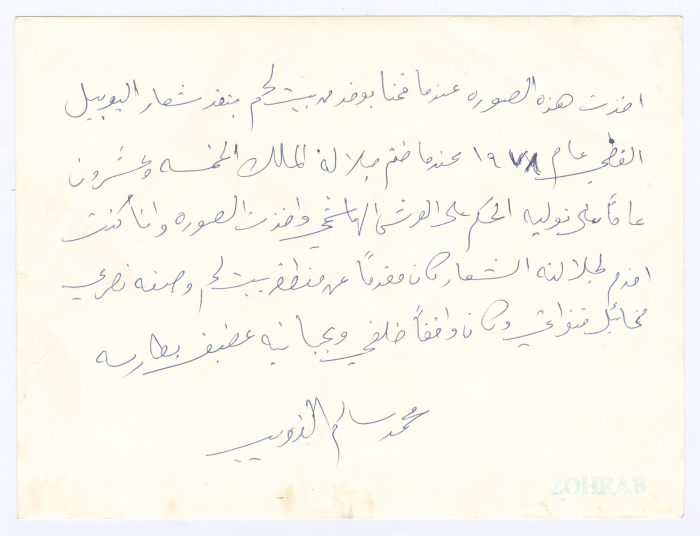 اخذت هذه الصوره عندما قمنا بوفد من بيت لحم بتقديم شعار اليوبيل
الفضي عام ١٩٧٨ عندما ختم جلالة الملك الخمسه وعشرون
عاماً على توليه الحكم على العرش الهاشمي واخذت الصوره وانا كنت
اقدم لجلالته الشعار كان مقدماً عن منطقة بيت لحم وصنعه نصري
مخائيل قنواتي وكان واقفاً خلفي وبجانبه عفيف بطارسه
محمد سالم الذويب
ZOHRAB